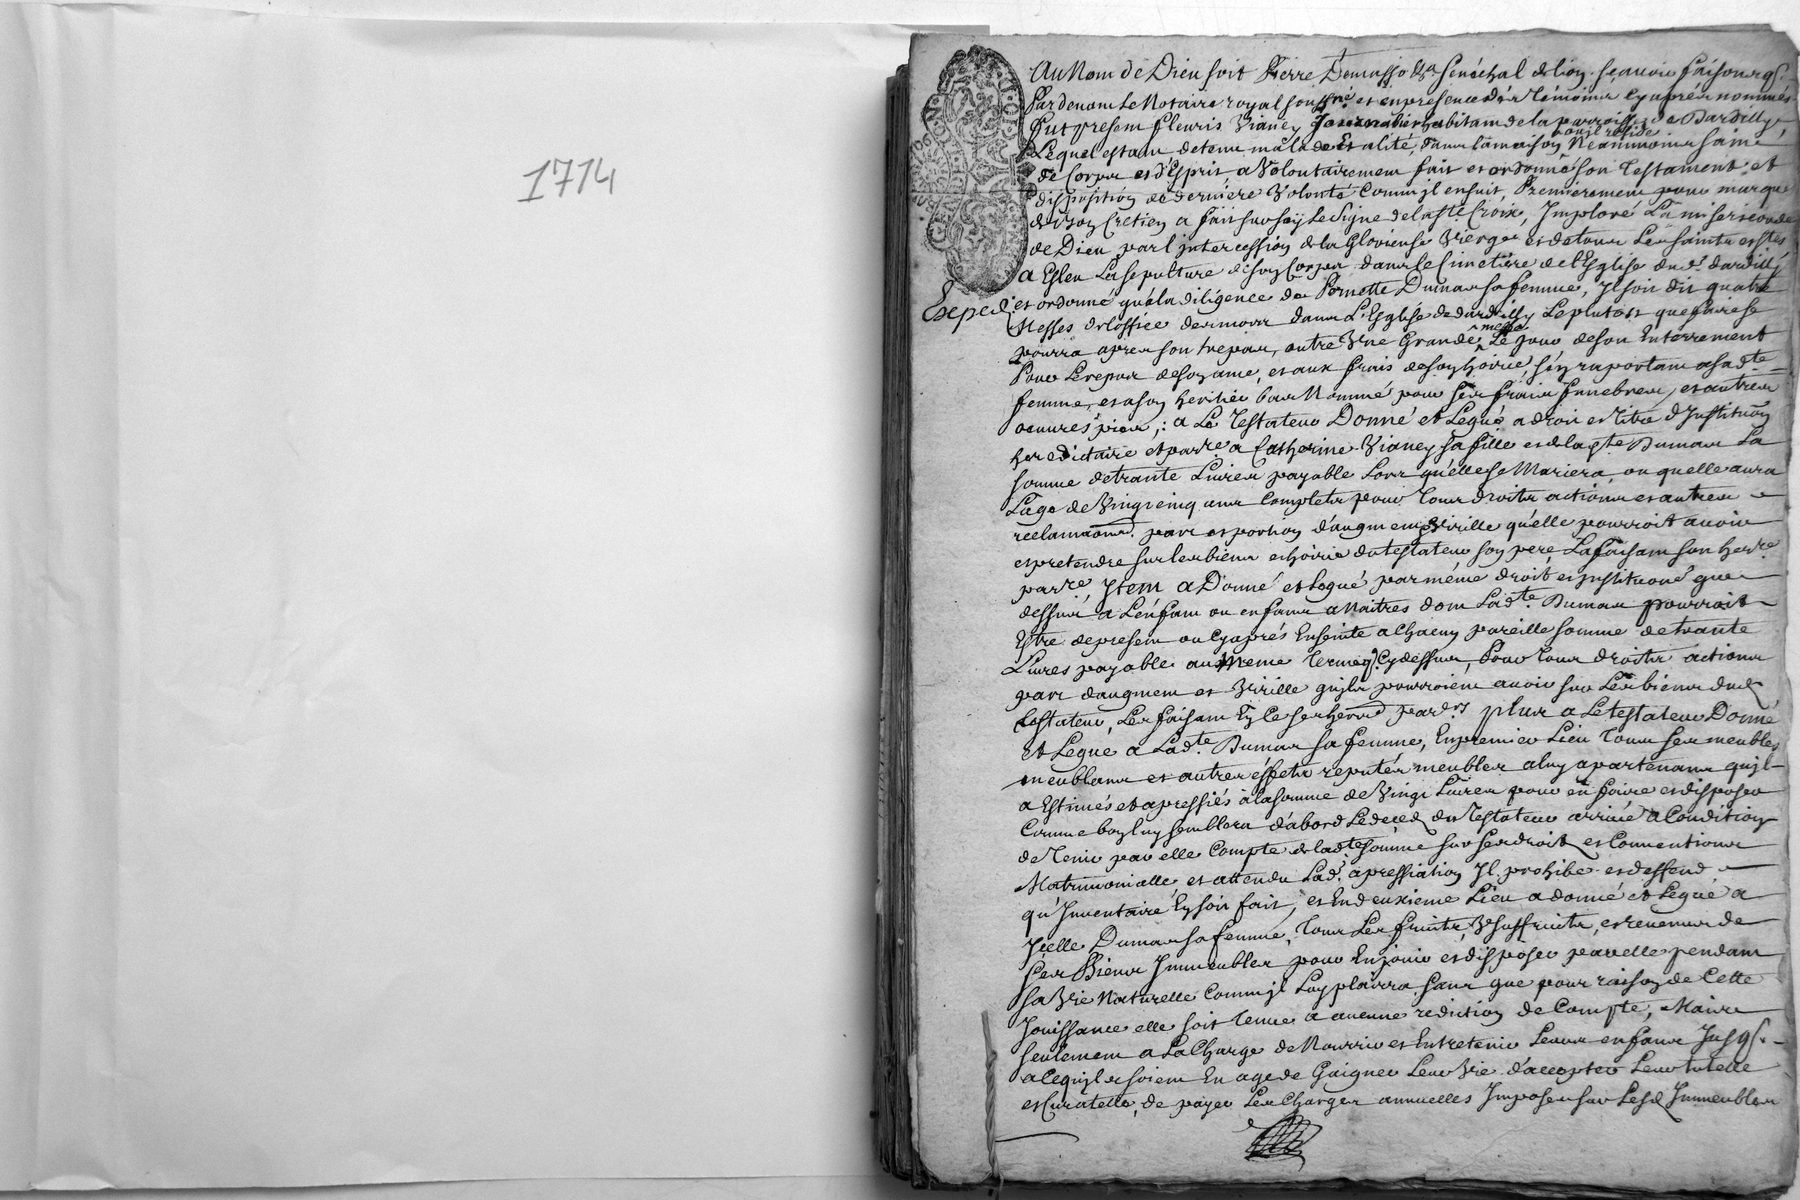 1714
Au Nom de Dieu soit Pierre Demasso Sénéchal de lion scavoir faisons qe
Pardevant Le Notaire royal soussné et en presence des témoins cy apres nommés
fut present fleuris Vianey Journalier habitant de la parroisse de Dardilly,
ou il reside
Lequel estant detenu malade et alité, dans la maison Néanmoins sain
de Corps et d'Esprit a Volontairement fait et ordonné son Testament et
disposition de derniere Volonté Comm'jl ensuit, Premierement pour marque
de bon Cretien a fait sur soy le signe de la ste Croix, Imploré La misericorde
de Dieu par l'jntercession de la Glorieuse Vierge et de tous Les saints et stes
a Esleu La sepulture de son Corps dans le Cimetière de l'Esglise du dt dardilly
Exped
et ordonné qu'a la diligence de Pernette Dumas sa femme, Il soit dit quatre
Messes de l'office des morts dans L'Esglise de dardilly Le plutost que faire se
messe
pourra apres son trepas, outre Une Grande Le jour de son Enterrement
Pour Le repos de son ame, et aux frais de son hoirie, s'en raportant a sa dte
femme, et a son heritier bas Nommé pour ses frais funebres, et autres
oeuvres pies; a Le Testateur Donné et Legué a droit et titre d'Institution
hereditaire et parre a Catherine Vianey sa fille et de la dte Dumas La
somme de trante Livres payable Lors qu'elle se Mariera, ou quelle aura
L'age de Vingt cinq ans Complets pour Tous droits actions et autres
reclamaons part et portion d'augment Virille qu'elle pourroit avoir
et pretendre sur les biens et hoirie du testateur son pere La faisant son herre
parre, Item a Donné et Legué par méme droit et jnstituaon que
dessus a L'enfant ou enfans a Naitres dont Lad.te Dumas pourroit
Estre de present ou Cy aprés Enseinte a Chacun pareille somme de trante
Livres payable au Meme terme q Cy dessus, Pour Tous droits actions
part daugment et Virille qu'jls pourroient avoir sur Les biens dud
testateur, Les faisant En Ce ses herrs parrs plus a Le testateur Donné
et Legué a Lad.te Dumas sa femme, En premier Lieu Tous ses meubles
meublans et autres éffets reputés meubles a luy apartenans qu'jl
a Estimés et apressiés à la somme de Vingt Livres pour en faire et disposer
Comme bon luy semblera d'abord Le deced du Testateur arrivé a Condition
de Tenir par elle Compte de ladte somme sur ses droits et Conventions
Matrimonialle, et attendu Lad. apressiation Jl prohibe et deffend
qu'Inventaire En soit fait, et En deuxieme Lieu a donné et Legué a
Jcelle Dumas sa femme, Tous Les fruits, Usuffruits, et revenus de
ses Biens Immeubles pour En jouir et disposer par elle pendant
sa Vie Naturelle Comm'jl Luy plairra sans que pour raison de Cette
Jouissance elle soit Tenue a aucune rediction de Compte, Mais
seulement a La Charge de Nourrir et Entretenir Leurs enfans Jusqs
a Ce qu'jls soient En age de Gaigner Leur Vie d'accepter Leur tutelle
et Curatelle, de payer Les Charges annuelles Imposées sur Lesd Immeubles